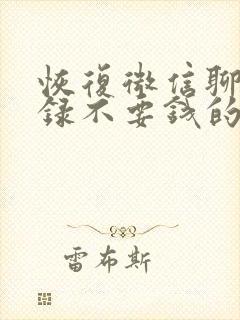 恢復微信聊
錄不要錢的
雷布斯